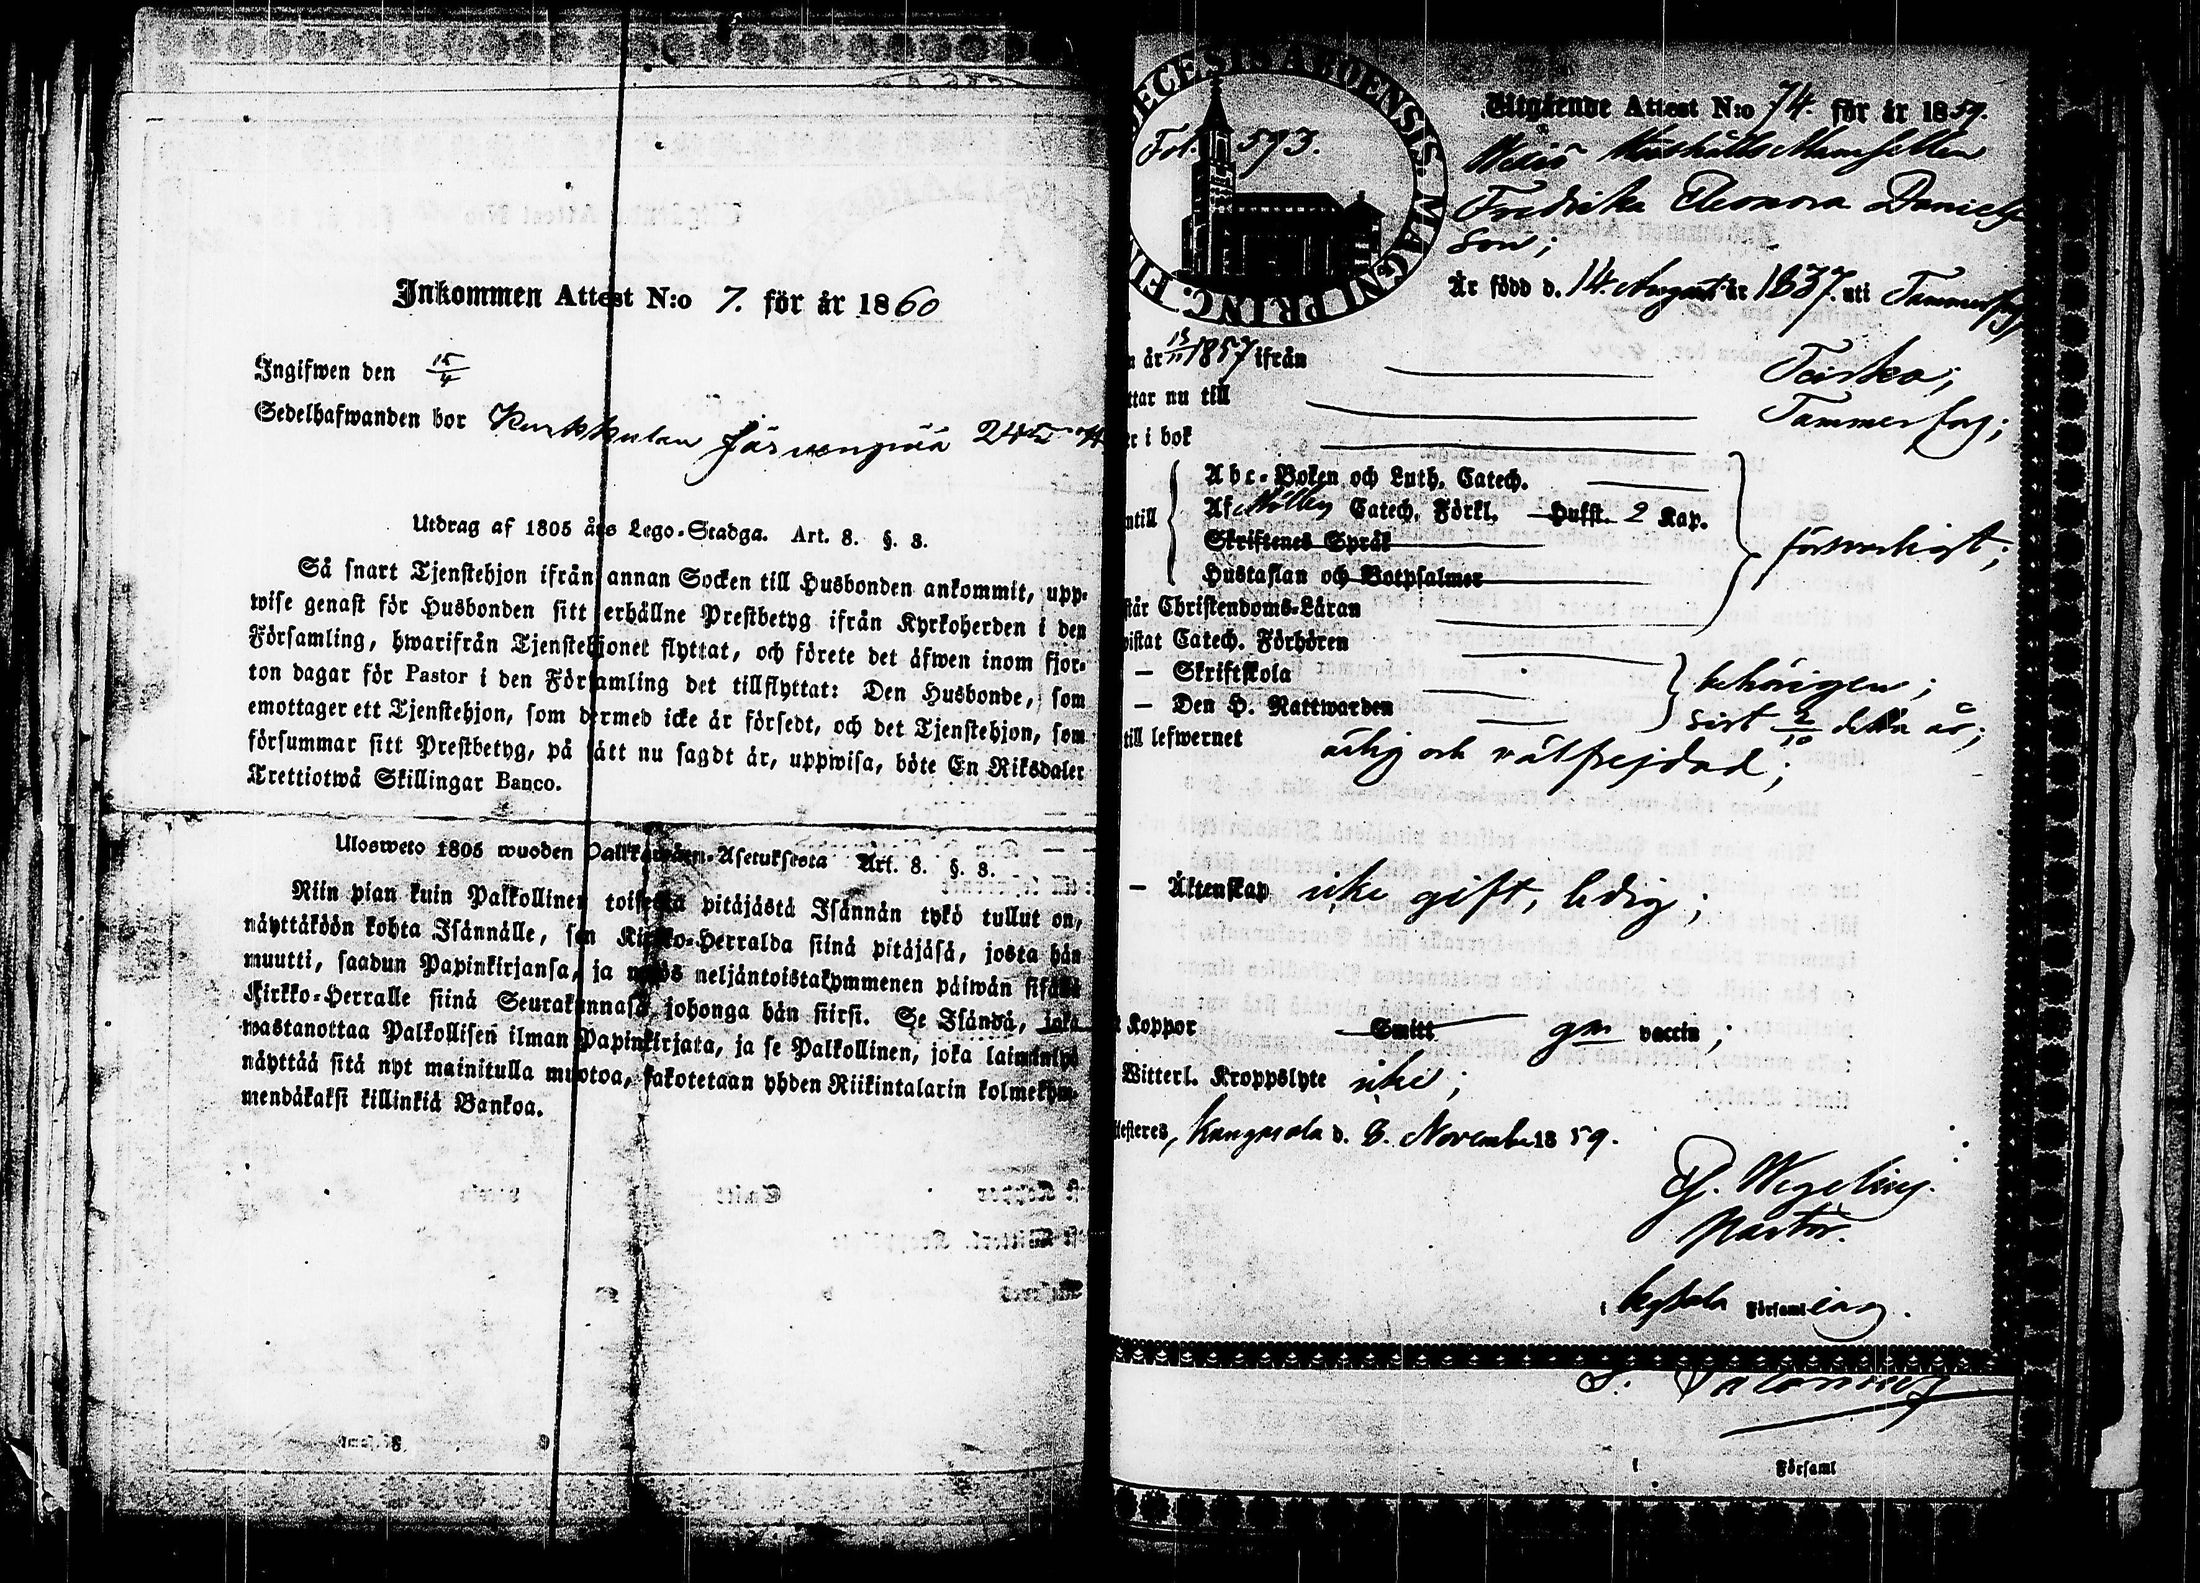 Inkommen Attest N:o 7. för år 1860
Ingifwen den 15/4
Sedelhafwanden bor Kurkkulan Järvenpää
Utdrag af 1805 års Lego-Stadga. Art. 8. §. 3.
Så snart Tjenstehjon ifrån annan Socken till Husbonden ankommit, upp-
wise genast för Husbonden sitt erhållne Prestbetyg ifrån Kyrkoherden i den
Församling, hwarifrån Tjenstehjonet flyttat, och förete det äfwen inom fjor-
ton dagar för Pastor i den Församling det tillflyttat: Den Husbonde, som
emottager ett Tjenstehjon, som dermed icke är försedt, och det Tjenstehjon, som
försummar sitt Prestbetyg, på sätt nu sagdt är, uppwisa, böte En Riksdaler
Trettiotwå Skillingar Banco.
Ulosweto 1805 wuoden Palkkawäen-Asetuksesta Art. 8. §. 3.
Niin pian kuin Palkollinen toisesta pitäjästä Isännän tykö tullut on,
näyttäköön kohta Isännälle, sen Kirkko-Herralda siinä pitäjäsä, josta hän
muutti, saadun Papinkirjansa, ja myös neljäntoistakymmenen päiwän sisällä
Kirkko-Herralle siinä Seurakunnasa, johonga hän siirsi. Se Isändä, joka
wastanottaa Palkollisen ilman Papinkirjata, ja se Palkollinen, joka laiminlyö
näyttää sitä nyt mainitulla muotoa, sakotetaan yhden Riikintalarin kolmekym-
mendäkaksi killinkiä Bankoa.
ECESIS ABOENSIS. MAGNI PRINC. FIN
Fol. 593.
Utgående Attest N:o 74. för år 1859.
Hushålls Mamsellen
Fredrika Eleonora Daniels
son;
Är född d. 14. August år 1837. uti Tammerfors
n år 13/11 1857 ifrån Teisko;
ttar nu till Tammerfors;
er i bok
Abc-Boken och Luth. Catech.
ntill Af Möllers Catech. Förkl. Hufst. 2 Kap. försvarligt;
Skriftenes Språk
Hustaflan och Botpsalmer
står Christendoms-Läran
vistat Catech. Förhören
— Skriftskola behörigen;
— Den H. Nattwarden sist 2/10 detta år;
till lefwernet ärlig och välfrejdad;
— Äktenskap icke gift, ledig;
Koppor Smitt gm vaccin;
Witterl. Kroppslyte icke;
testeres, Kangasala d. 8. November 1859.
G. Wegelius.
Pastor.
i Kgsala Församling.
Församl